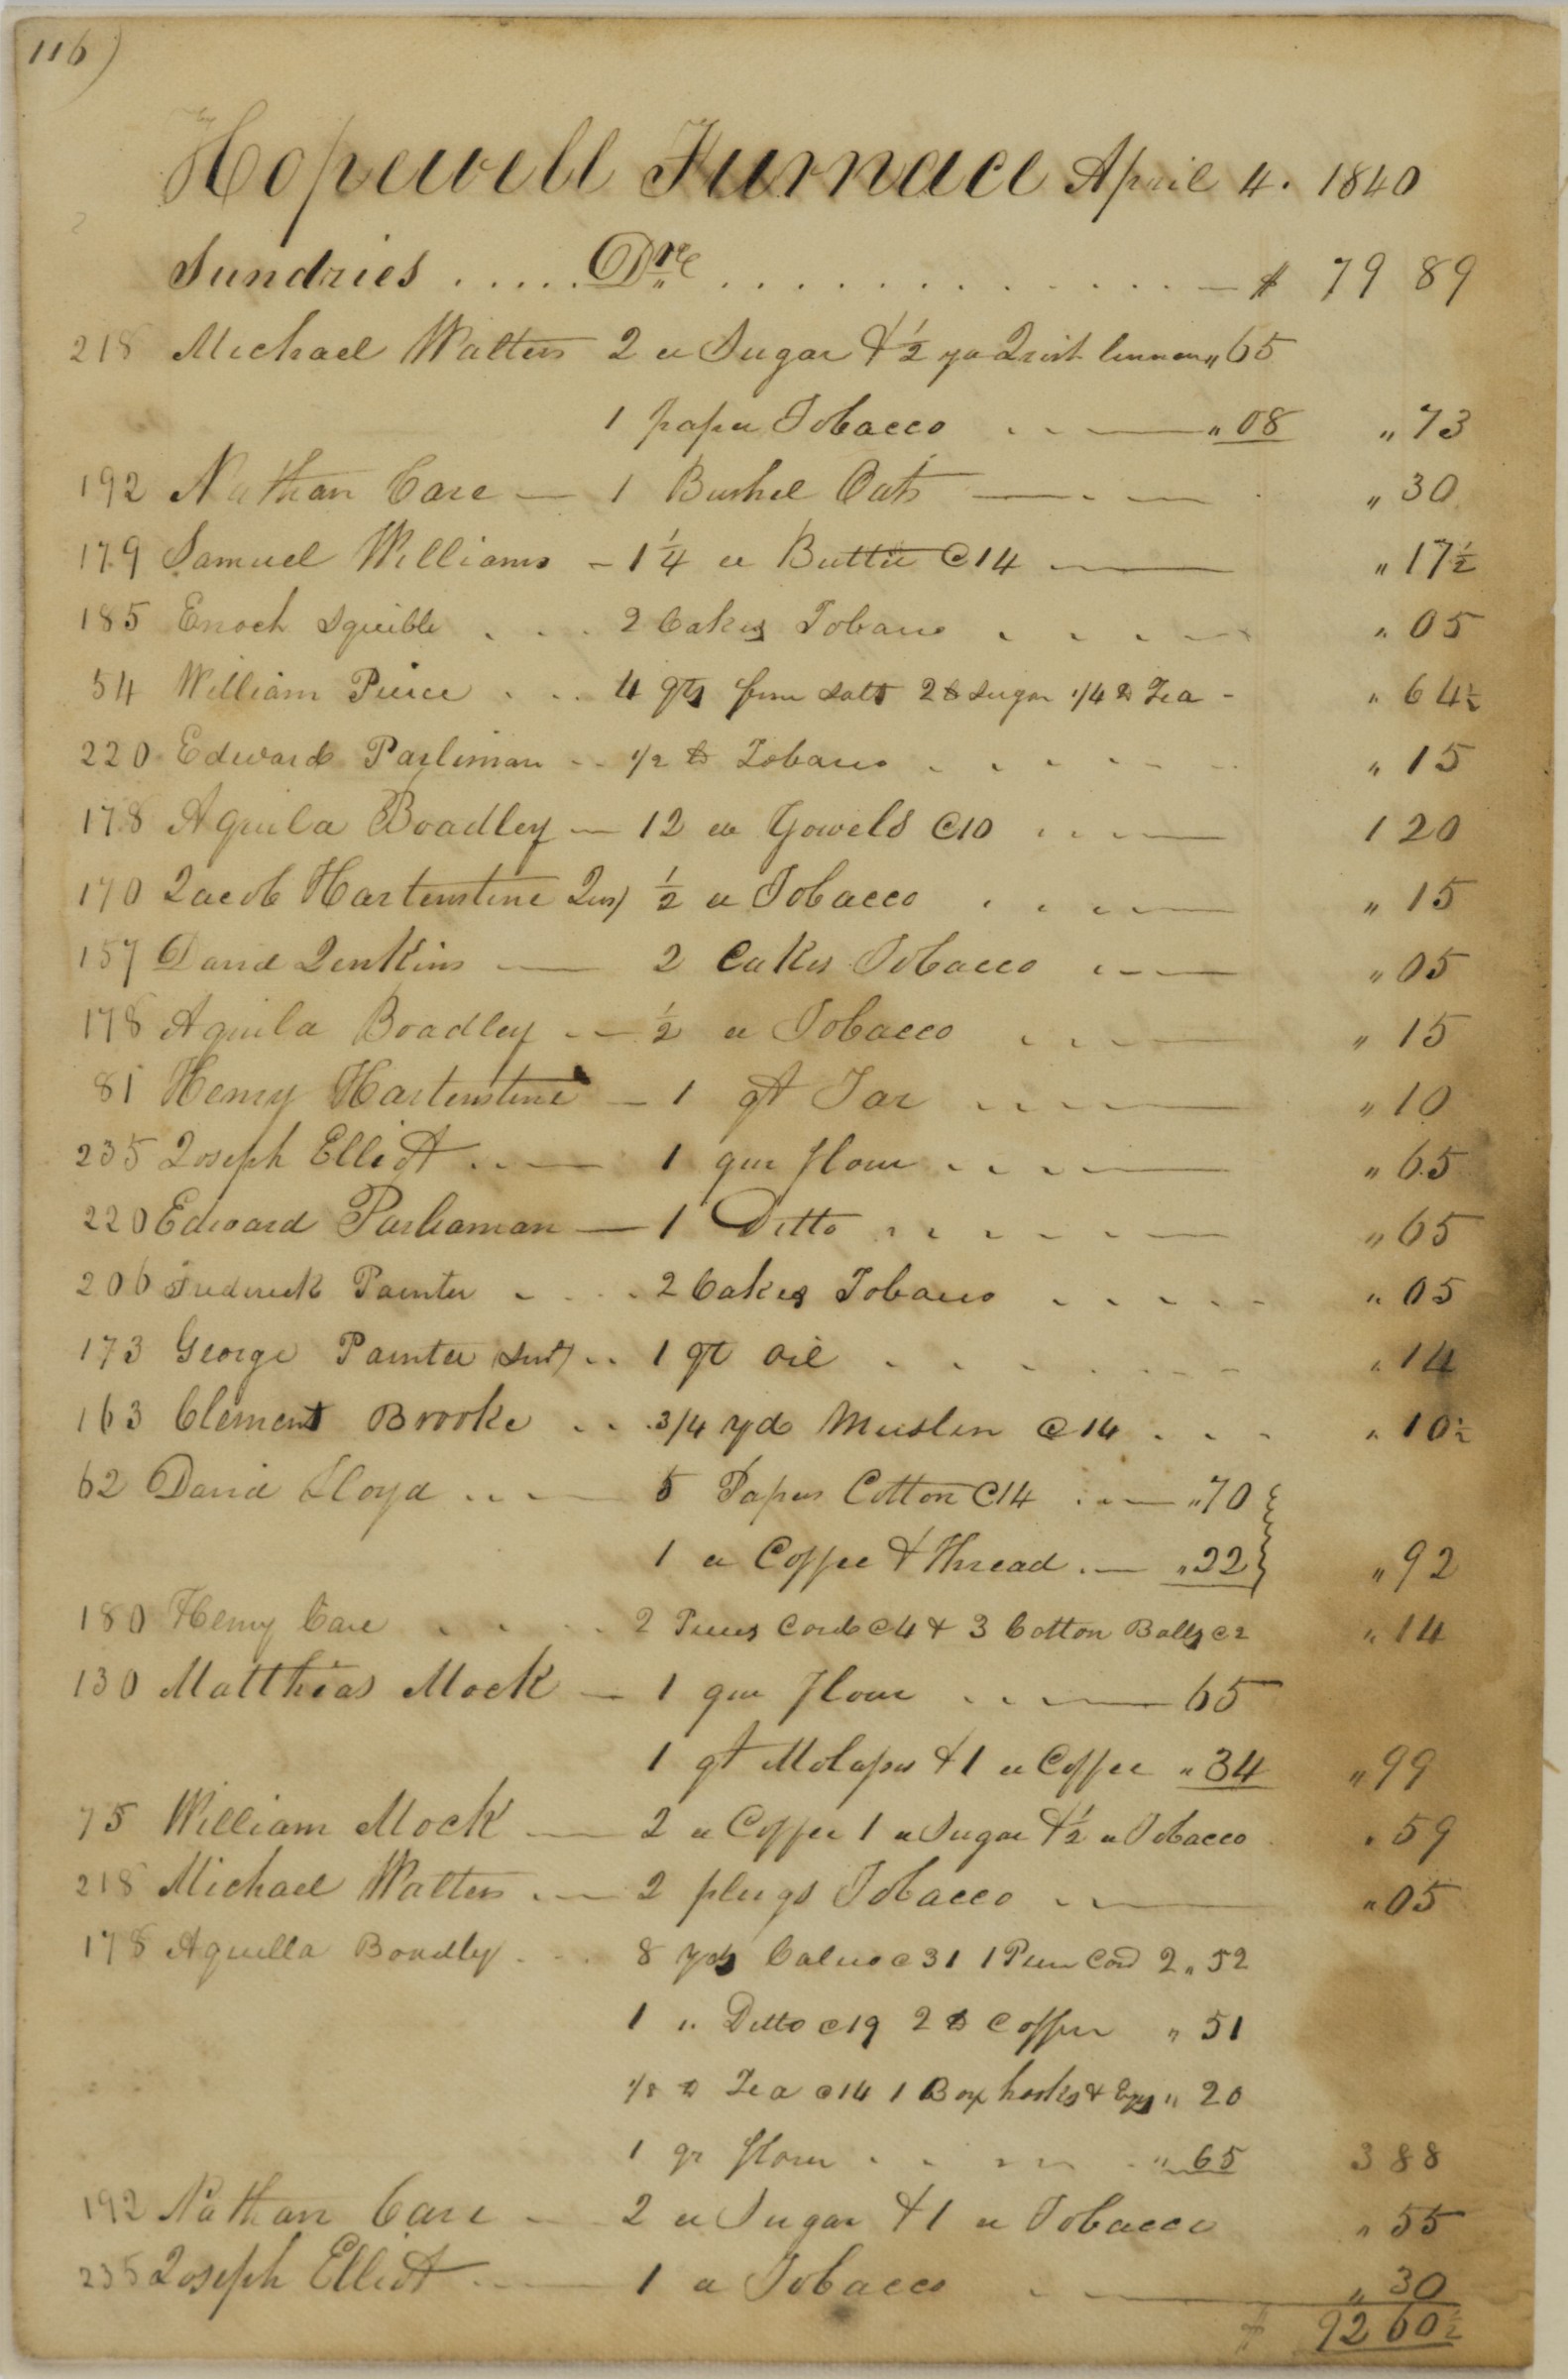 116)
Hopewell Furnace April 4. 1840
Sundries ..... Drs ............ — $ 79 89
218 Michael Walters 2 lb Sugar & ½ yd Irish linnen „ 65
1 paper Tobacco .. — „ 08 „ 73
192 Nathan Care — 1 Bushel Oats — . — „ 30
179 Samuel Williams - 1¼ lb Butter @14 — „ 17½
185 Enoch Squible . . . 2 Cakes Tobacco . . . . — „ 05
54 William Peirce . . . 4 qts fine Salt 2 lb Sugar 1/4 lb Tea - „ 64½
220 Edward Parliman .. 1/2 lb Tobacco . . . . . . „ 15
178 Aquila Boadley — 12 lb Yowels @10 ... — 1 20
170 Jacob Hartenstine Jun) ½ lb Tobacco . . . — „ 15
157 David Jenkins — 2 Cakes Tobacco . - — „ 05
178 Aquila Boadley .. — ½ lb Tobacco . . . — „ 15
81 Henry Hartenstine — 1 qt Tar .... — „ 10
235 Joseph Elliott .. — 1 qur flour .... — „ 65
220 Edward Parliaman — 1 Ditto . . . . . — „ 65
206 Frederick Painter . . . . 2 Cakes Tobacco . . . . . „ 05
173 George Painter Snr) .. 1 qt Oil . . . . . . „ 14
163 Clement Brooke . . 3/4 yd Muslin @ 14 . . . „ 10½
62 David Lloyd ... — 5 Papers Cotton @14 ... — „ 70
1 lb Coffee & Thread . — „ 22 „ 92
180 Henry Care . . . . 2 Pieces Cord @4 & 3 Cotton Balls @2 „ 14
130 Matthias Mock — 1 qur flour ... — 65
1 qt Molasses & 1 lb Coffee „ 34 „ 99
75 William Mock — 2 lb Coffee 1 lb Sugar & ½ lb Tobacco . 59
218 Michael Walters . — 2 plugs Tobacco .. — „ 05
178 Aquilla Boadley . . . 8 yds Calico @31 1 Piece Cord 2 „ 52
1 „ Ditto @19 2 lb Coffee „ 51
1/8 lb Tea @14 1 Box hooks & Eyes „ 20
1 qr flour . . . . . „ 65 3 88
192 Nathan Care — 2 lb Sugar & 1 lb Tobacco „ 55
235 Joseph Elliott .. — 1 lb Tobacco . . — „ 30
$ 92 60½